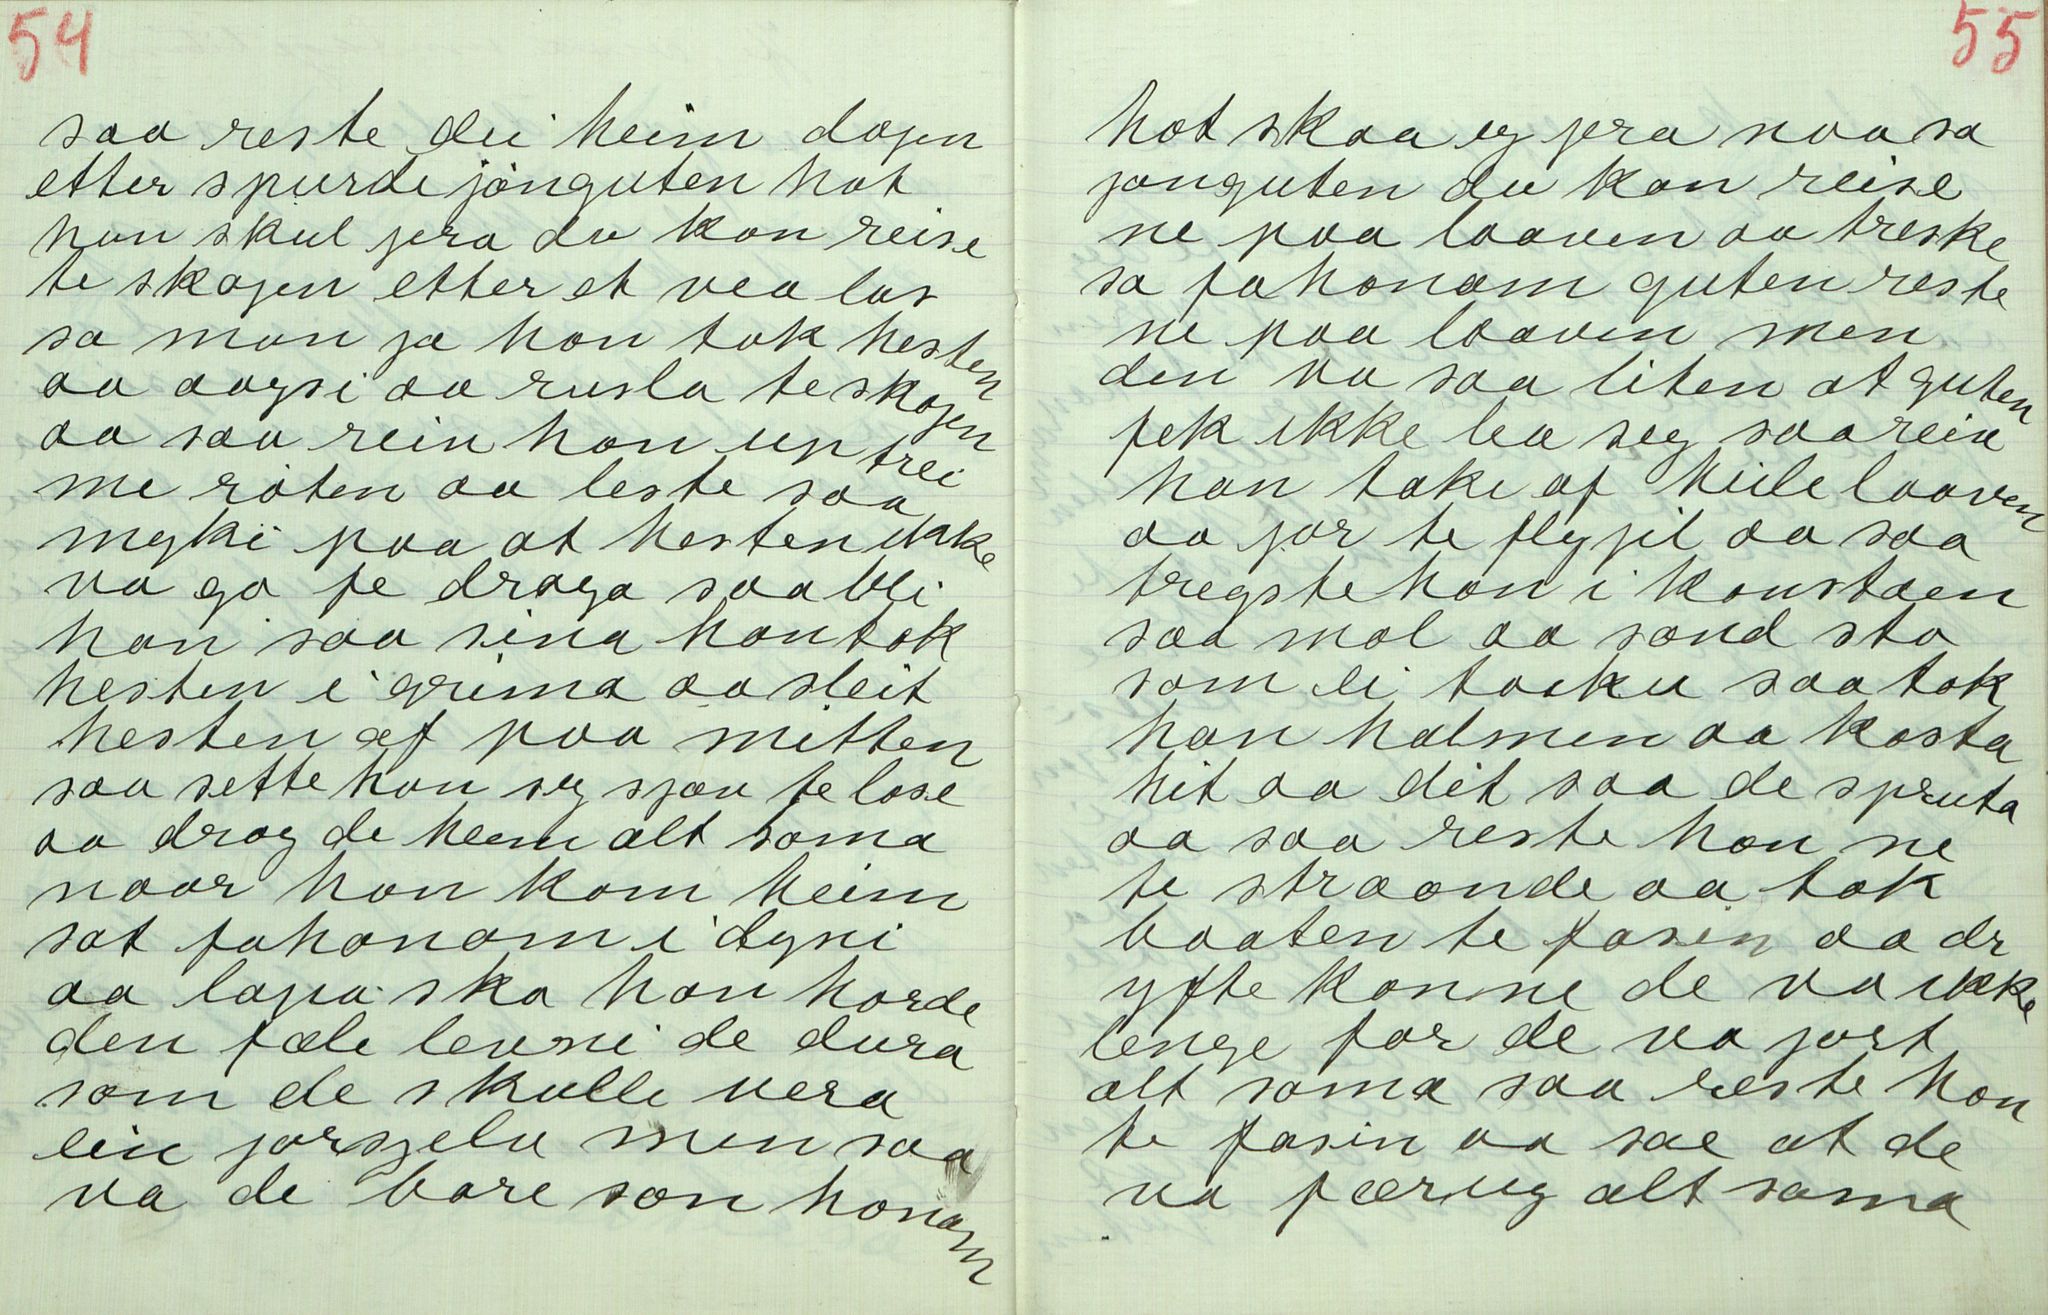 54
saa reste dei heim dagen
etter spurde jønguten hot
han skul jera du kan reise
te skogen etter et vea las
sa man ja han tok hesten
aa aaysi aa rusla te skogen
aa saa rein han up trei
me røten aa leste saa
myki paa at hesten ikke
va go fe draga saa bli
han saa sina han tok
hesten i grima aa sleit
hesten af paa mitten
saa sette han seg sjøu fe lase
aa drog de heem alt sama
naar han kom heim
sat fahonom i dyni
aa lapa ska han horde
den fæle levni de dura
som de skulle vera
ein jorsjelv men saa
va de bare søn honom
55
hot skaa eg jera naa sa
jønguten du kan reise
ne paa laaven aa treske
sa fahonom guten reste
ne paa laaven men
den va saa liten at guten
fek ikke lea seg saa rein
han take af heile laaven
aa jor te flyjil aa saa
tregste han i konstaen
saa mol aa sand sto
som ei tocku saa tok
han halmen aa kasta
hit aa dit saa de spruta
aa saa reste han ne
te straonde aa tok
baaten te fasin aa dr
yfte konne de va ikke
lenge før de va jort
alt sama saa reste han
te fasin aa sae at de
va færug alt sama